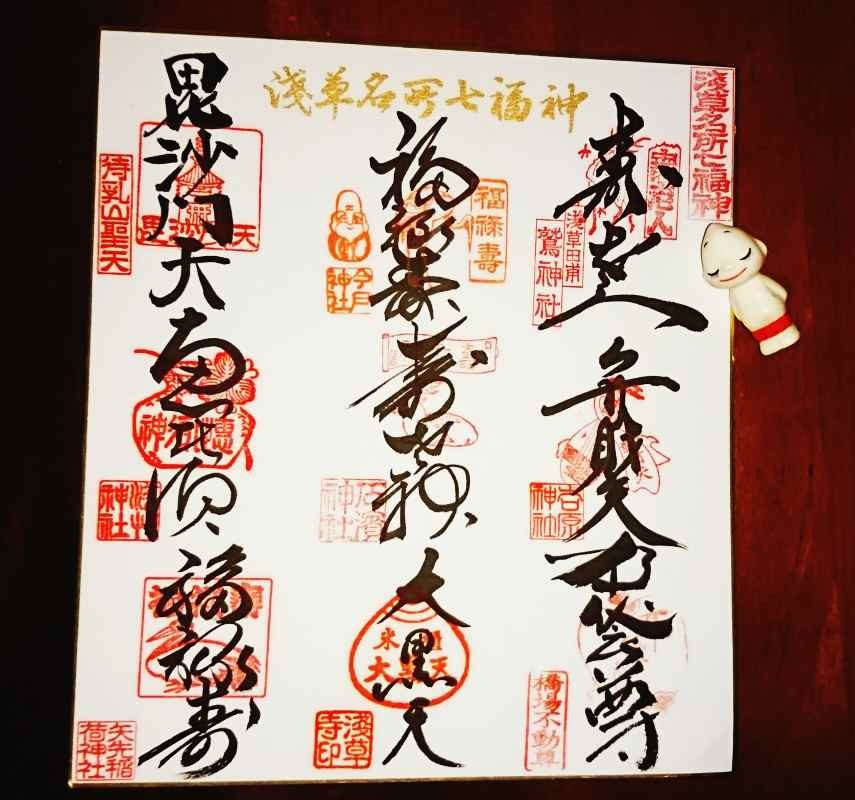 浅草名所七福神
淺草名所七福神
寿老人
浅草田甫
鷲神社
弁財天
吉原
神社
布袋尊
橋場不動尊
福禄寿
福禄壽
今戸
神社
寿老神
石濱
神社
大黒天
大黒天
淺草
寺印
毘沙門天
待乳山聖天
恵比須
神社
福禄寿
矢先稲
荷神社